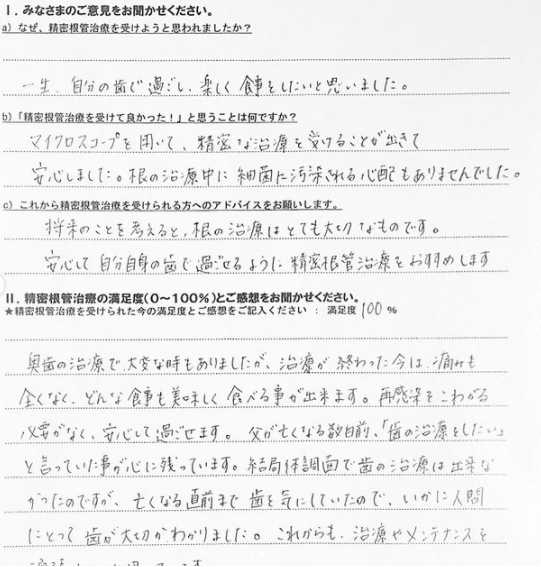 I. みなさまのご意見をお聞かせください。
a) なぜ、精密根管治療を受けようと思われましたか？
一生、自分の歯で過ごし、楽しく食事をしたいと思いました。
b)「精密根管治療を受けて良かった！」と思うことは何ですか？
マイクロスコープを用いて、精密な治療を受けることが出きて
安心しました。根の治療中に細菌に汚染される心配もありませんでした。
c) これから精密根管治療を受けられる方へのアドバイスをお願いします。
将来のことを考えると、根の治療はとても大切なものです。
安心して自分自身の歯で過ごせるように精密根管治療をおすすめします
II. 精密根管治療の満足度（0～100％）とご感想をお聞かせください。
★精密根管治療を受けられた今の満足度とご感想をご記入ください ： 満足度 100 %
奥歯の治療で、大変な時もありましたが、治療が終わった今は、痛みも
全くなく、どんな食事も美味しく食べる事が出来ます。再感染をこわがる
必要がなく、安心して過ごせます。父が亡くなる数日前、「歯の治療をしたい」
と言っていた事が心に残っています。結局体調面で歯の治療は出来な
かったのですが、亡くなる直前まで歯を気にしていたので、いかに人間
にとって歯が大切かわかりました。これからも、治療やメンテナンスを